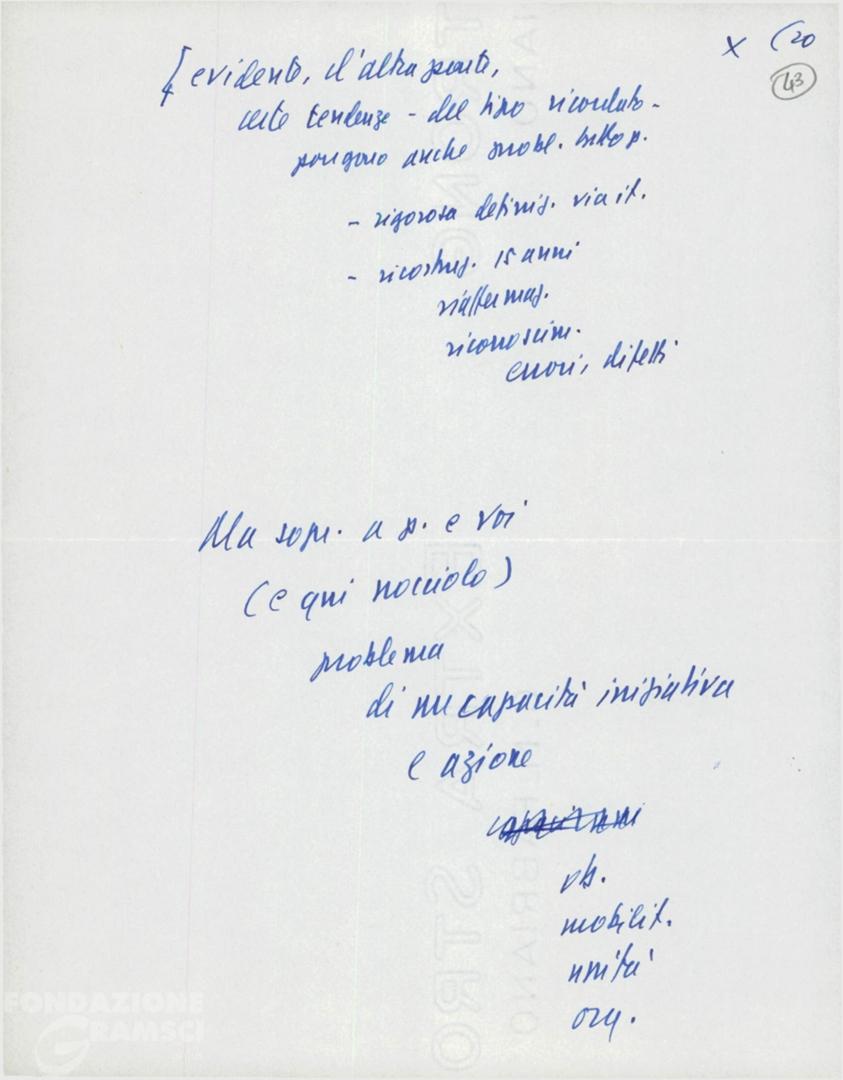 x (20
43
[evidente, d'altra parte,
certe tendenze - del tipo ricordato -
pongono anche probl. sotto p.
- rigorosa definiz. via it.
- ricostruz. 15 anni
riaffermaz.
riconoscim.
errori, difetti
Ma sopr. a p. e voi
(e qui nocciolo)
problema
di ns capacità iniziativa
e azione
ob.
mobilit.
unità
org.
FONDAZIONE
GRAMSCI